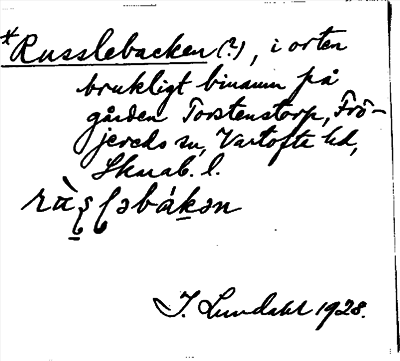 *Russlebacken (?), i orten
brukligt binamn på
gården Torstenstorp, Frö-
jereds sn, Vartofte hd,
Skarab. l.
J. Lundahl 1928.